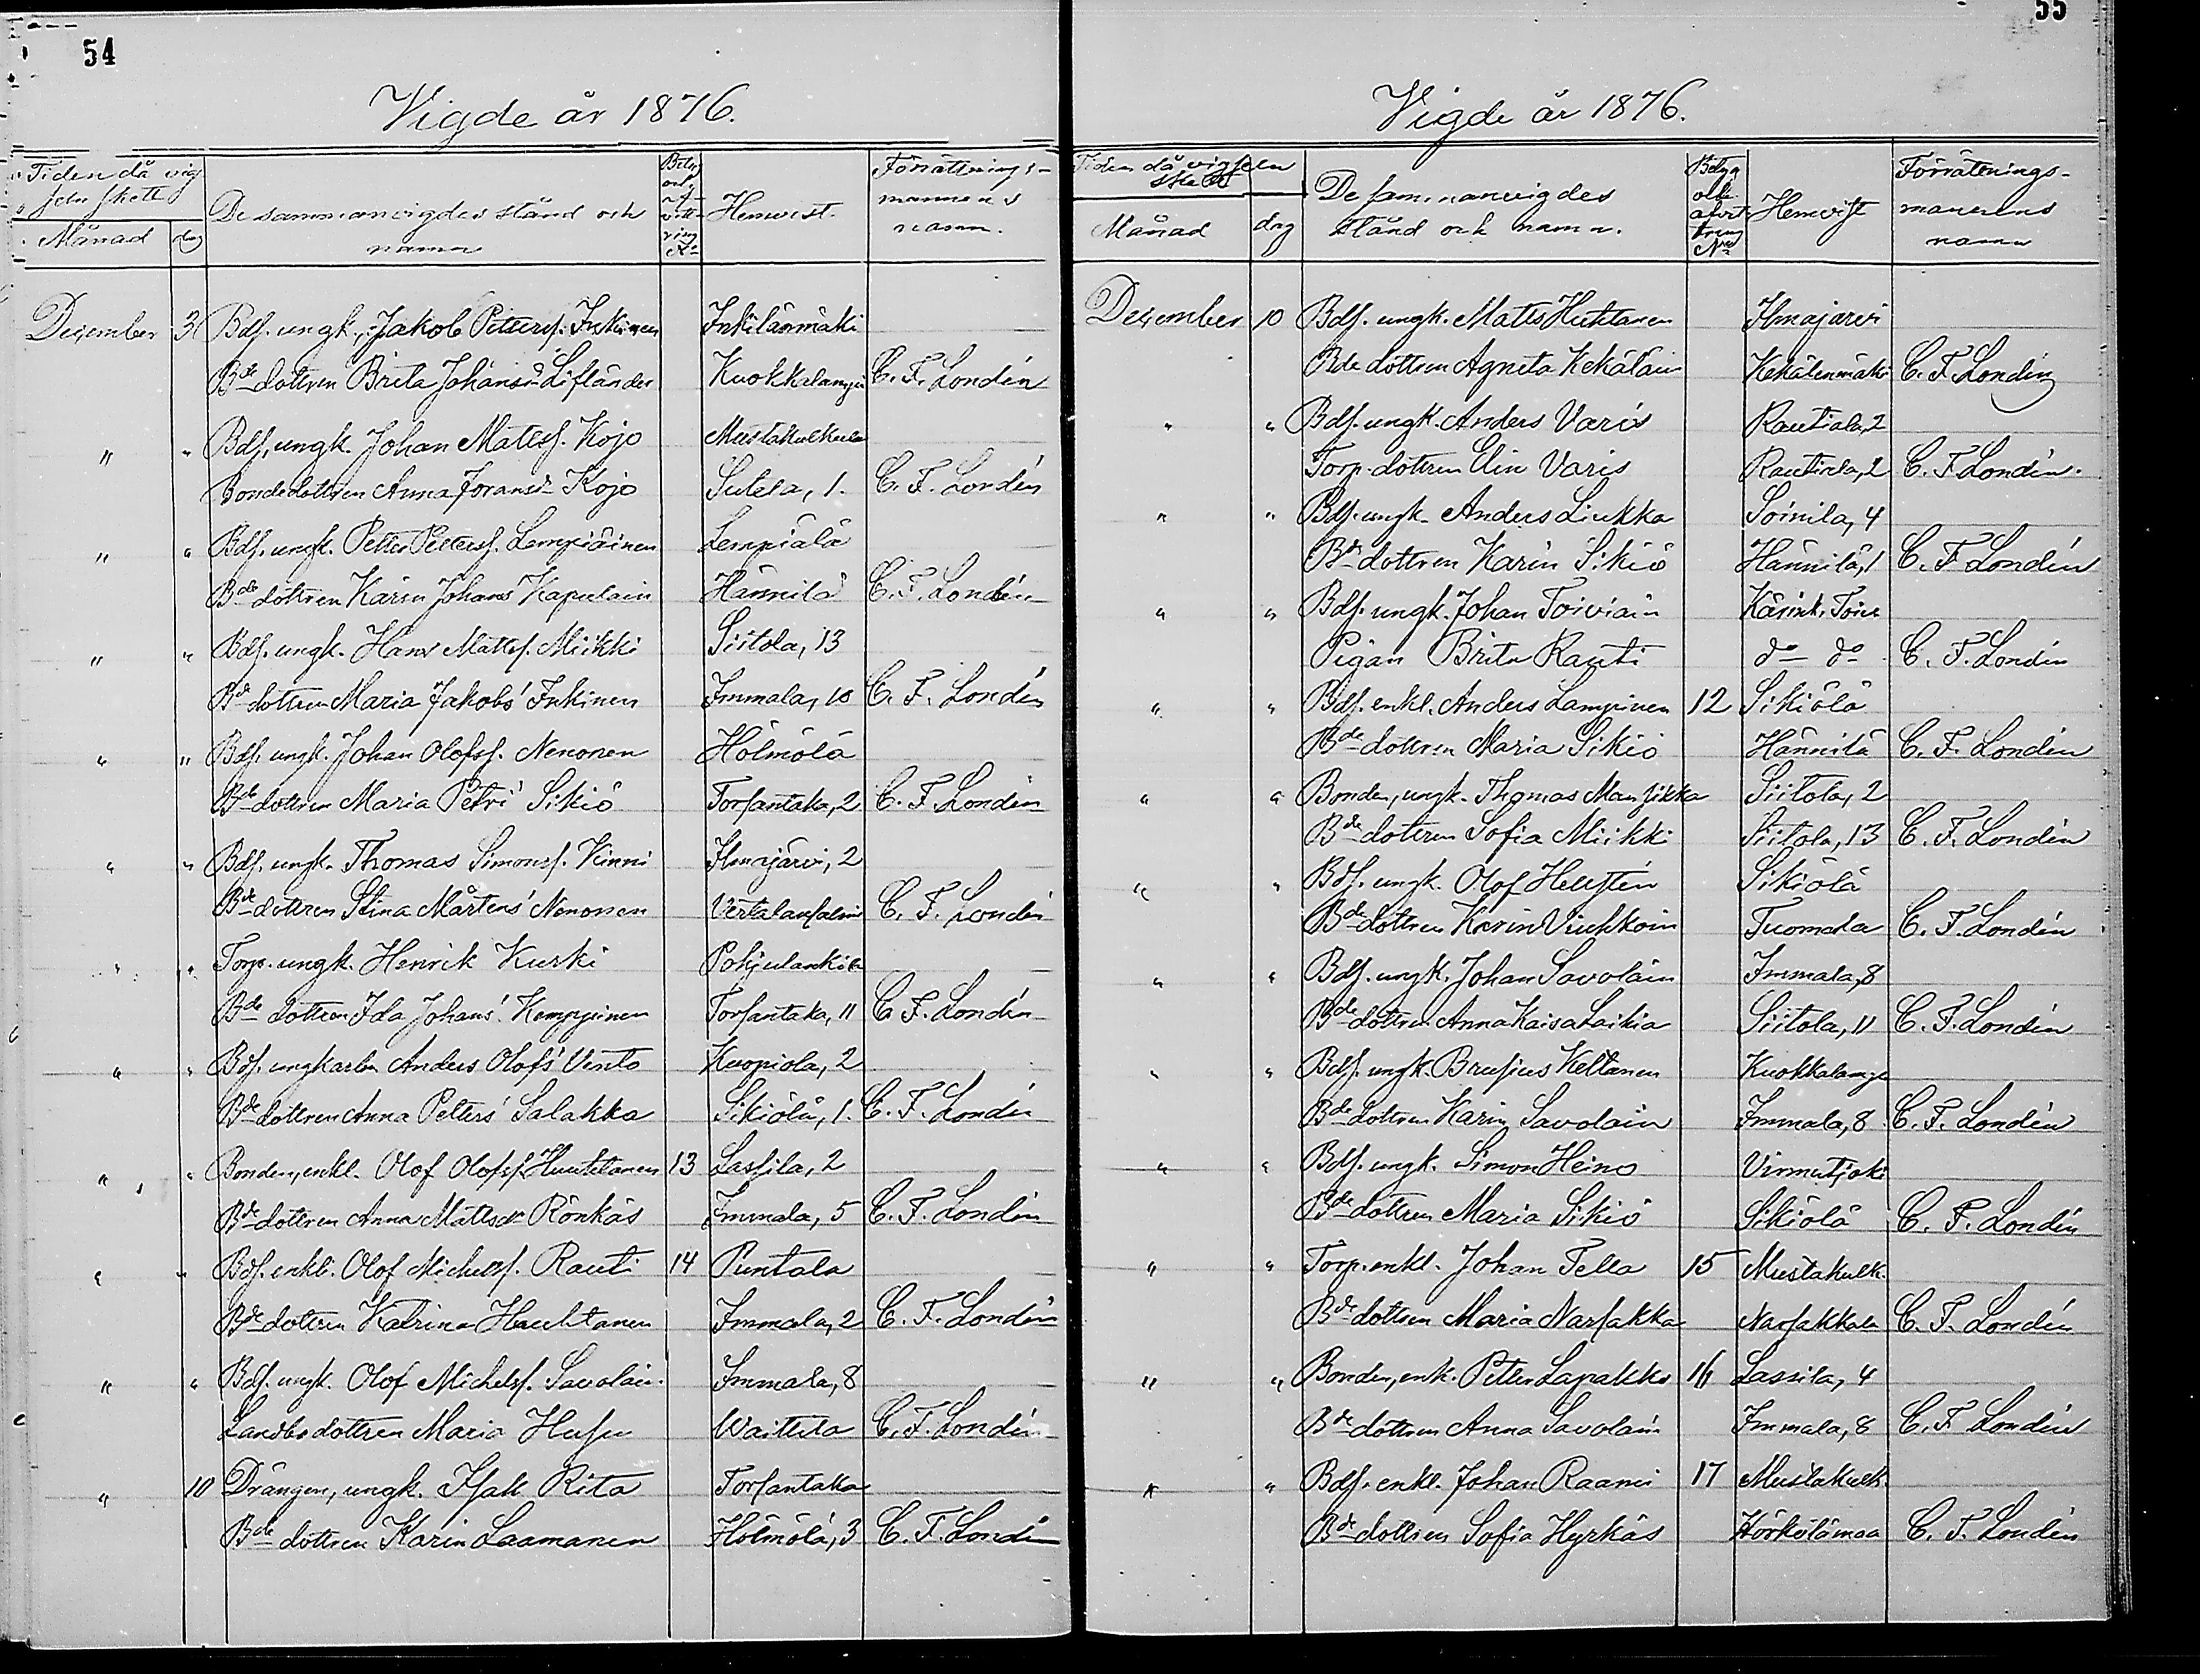 54
Vigde år 1876.
Tiden då vig
seln skett
Månad dag
De sammanvigdes stånd och
namn
Hemvist.
Förrättnings-
mannens
namn.
December 3 Bds. ungk. Jakob Petersf. Inkinen Inkilänmäki
Bde dottren Brita Johans Lifländer Kuokkalampi C. F. Londén
" " Bds. ungk. Johan Matsf. Kojo Mustakulkula
Bondedottren Anna Joransd. Kojo Sutela, 1. C. F. Londén
" " Bds. ungk. Petter Petersf. Lempiäinen Lempiälä
Bde dottren Karin Johans Kapulain Hännilä C. F. Londén
" " Bds. ungk. Hans Matsf. Miikki Siitola, 13
Bde dottren Maria Jakobs' Inkinen Immala, 10 C. F. Londén
" " Bds. ungk. Johan Olofsf. Nenonen Hölmölä
Bde dottren Maria Petri' Sikiö Torsantaka, 2 C. F. Londén
" " Bds. ungk. Thomas Simonsf. Kinni Ilmajärvi, 2
Bde dottren Stina Mårtens' Nenonen C. F. Londén
" " Torp. ungk. Henrik Kurki Pohjulankila
Bde dottren Ida Johans' Kemppinen Torsantaka, 11 C. F. Londén
" " Bds. ungkarlen Anders Olofs' Vento Kuopiola, 2
Bde dottren Anna Petters' Salakka Sikiölä, 1. C. F. Londén
" " Bonden, enkl. Olof Olofsf. Huuhtanen 13 Lassila, 2
Bde dottren Anna Mattsdr Rönkäs Immala, 5 C. F. Londén
" " Bds. enkl. Olof Michelsf. Rauti 14 Puntala
Bde dottren Katrina Hauhtanen Immala, 2 C. F. Londén
" " Bds. ungk. Olof Michelsf. Savolain. Immala, 8
Landbo dottren Maria Husu Waittila C. F. Londén
" 10 Drängen, ungk. Isak Rita Torsantaka
Bde dottren Karin Laamanen Hölmölä, 3 C. F. Londén
55
Vigde år 1876.
Tiden då vigseln
skett
Månad dag
De sammanvigdes
stånd och namn.
Hemvist
Förrättnings-
mannens
namn
December 10 Bds. ungk. Matts Huhtanen Ilmajärvi
Bde dottren Agneta Kekäläin Kekälenmäki C. F. Londén
" " Bds. ungk. Anders Varis Rautiala, 2
Torp. dottren Elin Varis Rautiala, 2 C. F. Londén.
" " Bds. ungk. Anders Liukka Soinila, 4
Bde dottren Karin Sikiö Hännilä, 1 C. F. Londén
" " Bds. ungk. Johan Toiviain
Pigan Brita Rauti do do C. F. Londén
" " Bds. enkl. Anders Lampinen 12 Sikiölä
Bde dottren Maria Sikiö Hännilä C. F. Londén
" " Bonden, ungk. Thomas Mansikka Siitola, 2
Bde dottren Sofia Miikki Siitola, 13 C. F. Londén
" " Bds. ungk. Olof Hellstén Sikiölä
Bde dottren Karin Tuomala C. F. Londén
" " Bds. ungk. Johan Savolain Immala, 8
Bde dottren Anna Kaisa Laikia Siitola, 11 C. F. Londén
" " Bds. ungk. Brusius Keltanen Kuokkalampi
Bde dottren Karin Savolain Immala, 8 C. F. Londén
" " Bds. ungk. Simon Heino Virmutjoki
Bde dottren Maria Sikiö Sikiölä C. F. Londén
" " Torp. enkl. Johan Tella 15 Mustakulk.
Bde dottren Maria Narsakka Narsakkala C. F. Londén
" " Bonden, enk. Petter Lapakko 16 Lassila, 4
Bde dottren Anna Savolain Immala, 8 C. F. Londén
" " Bds. enkl. Johan Raami 17 Mustakulk.
Bde dottren Sofia Hyrkäs Hörkölämaa C. F. Londén